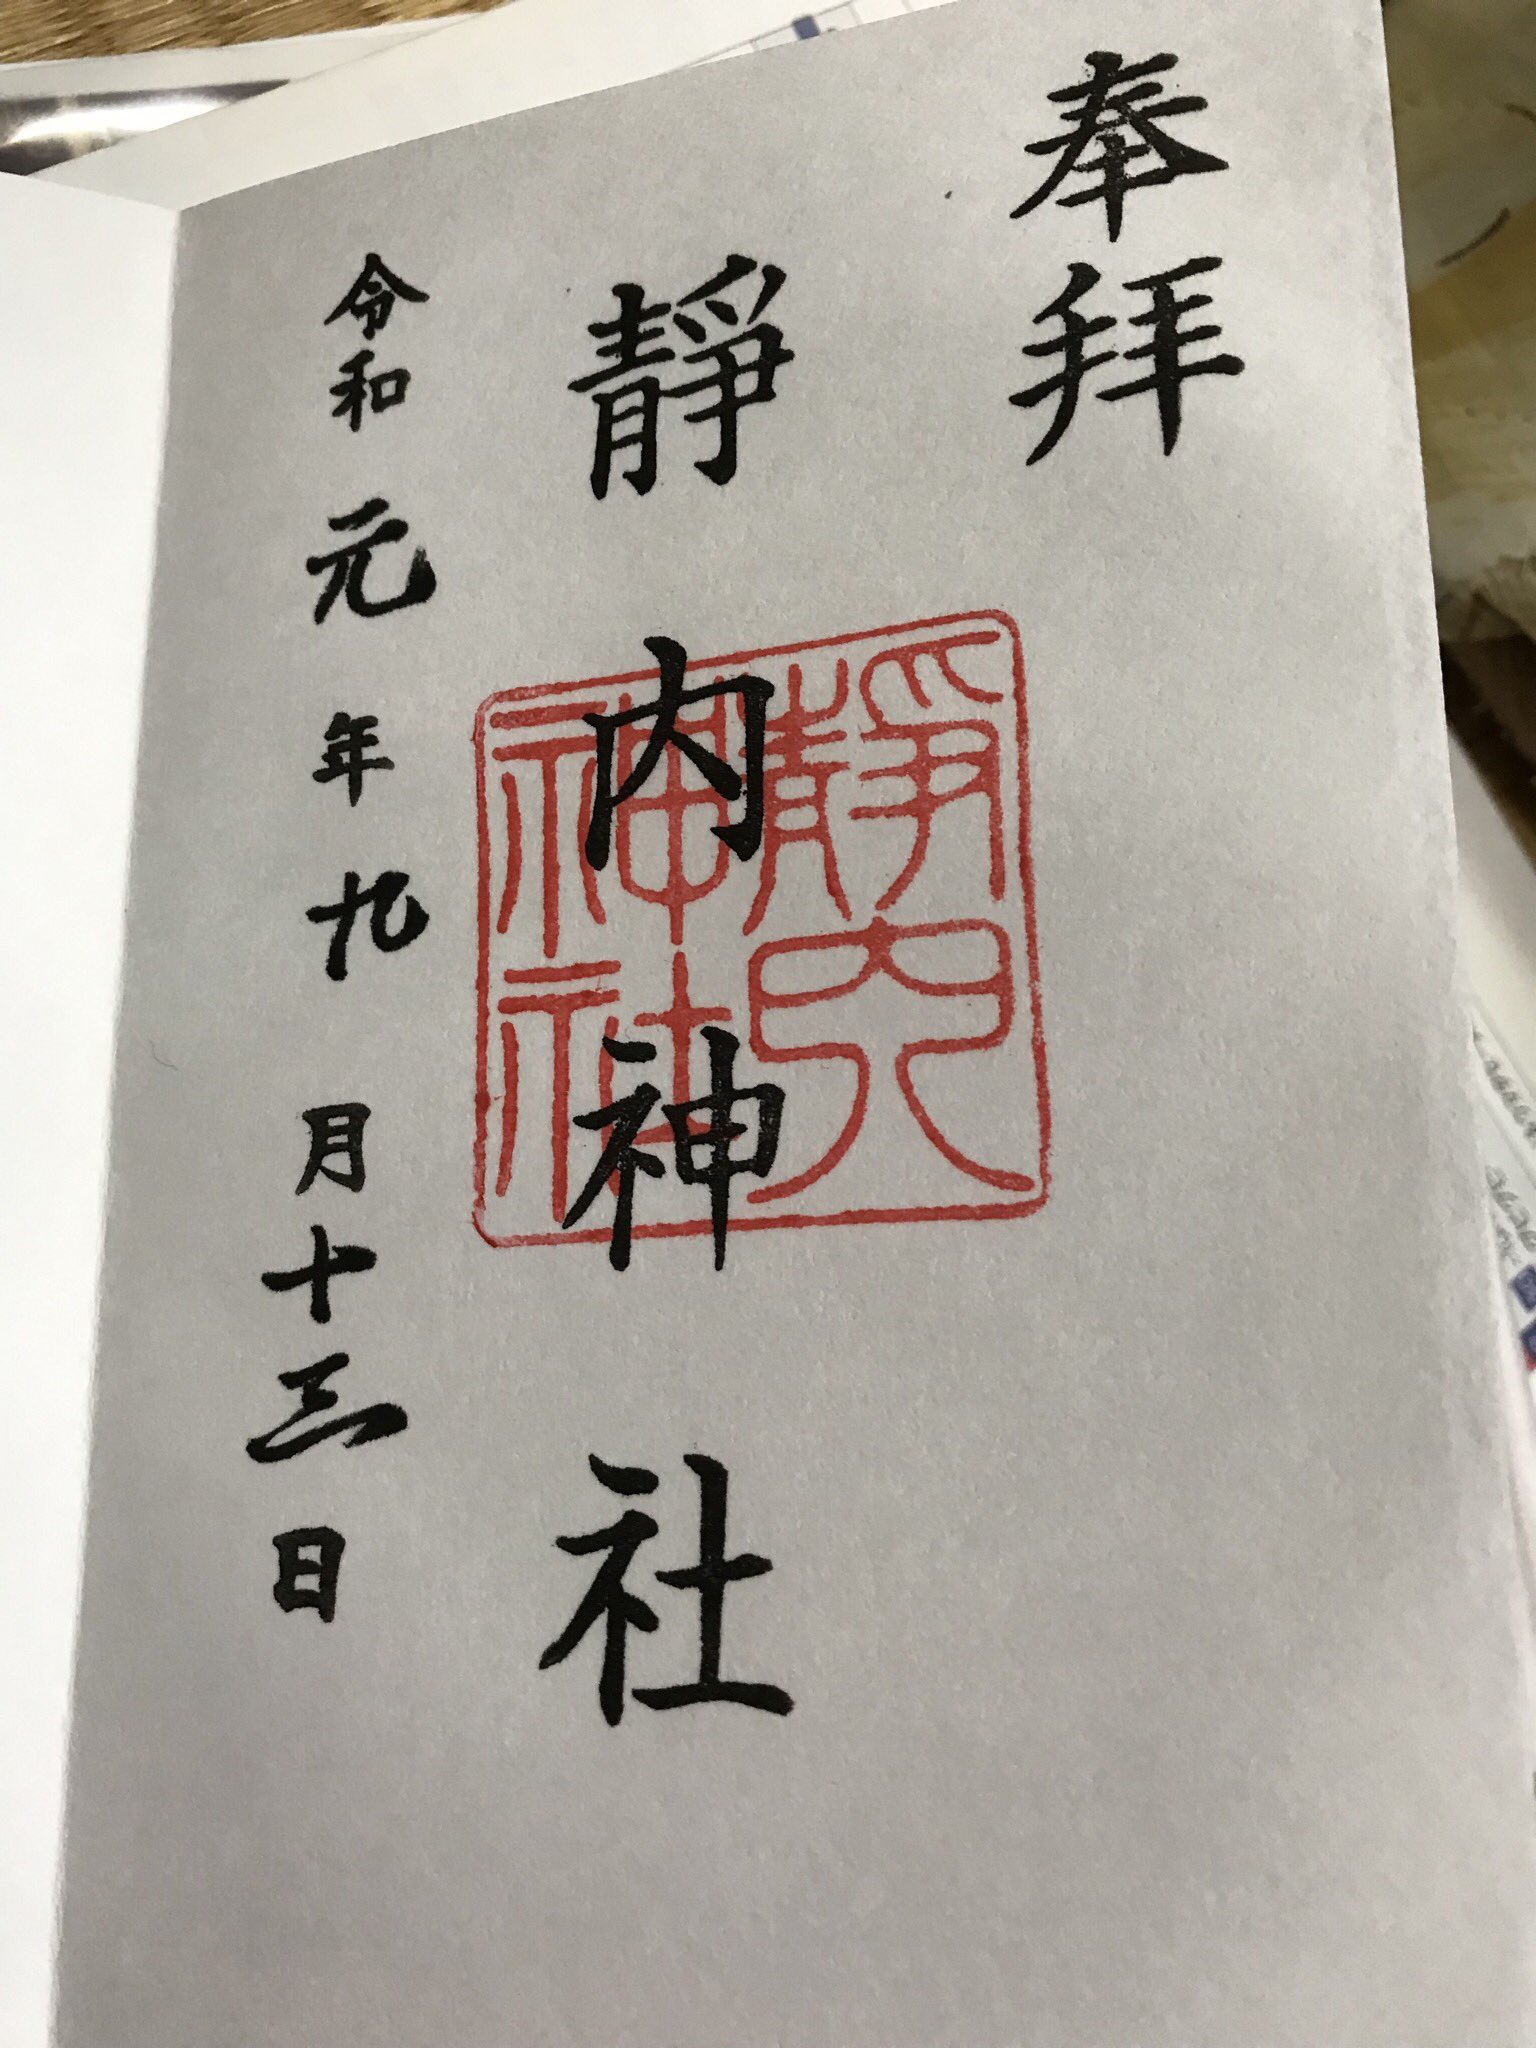 奉拝
靜内神社
靜内神社
令和元年九月十三日